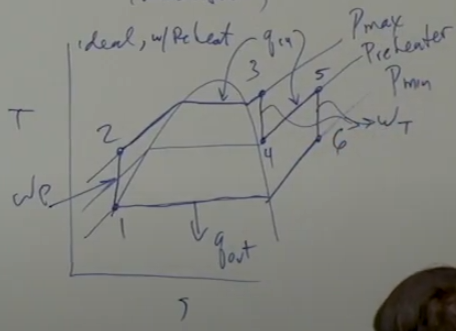 ideal, w/Reheat
qin
Pmax
Preheater
Pmin
T
3
5
2
wT
4
6
wP
1
qout
s